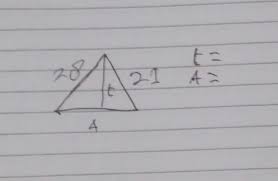 28 t 21 t =
A =
A